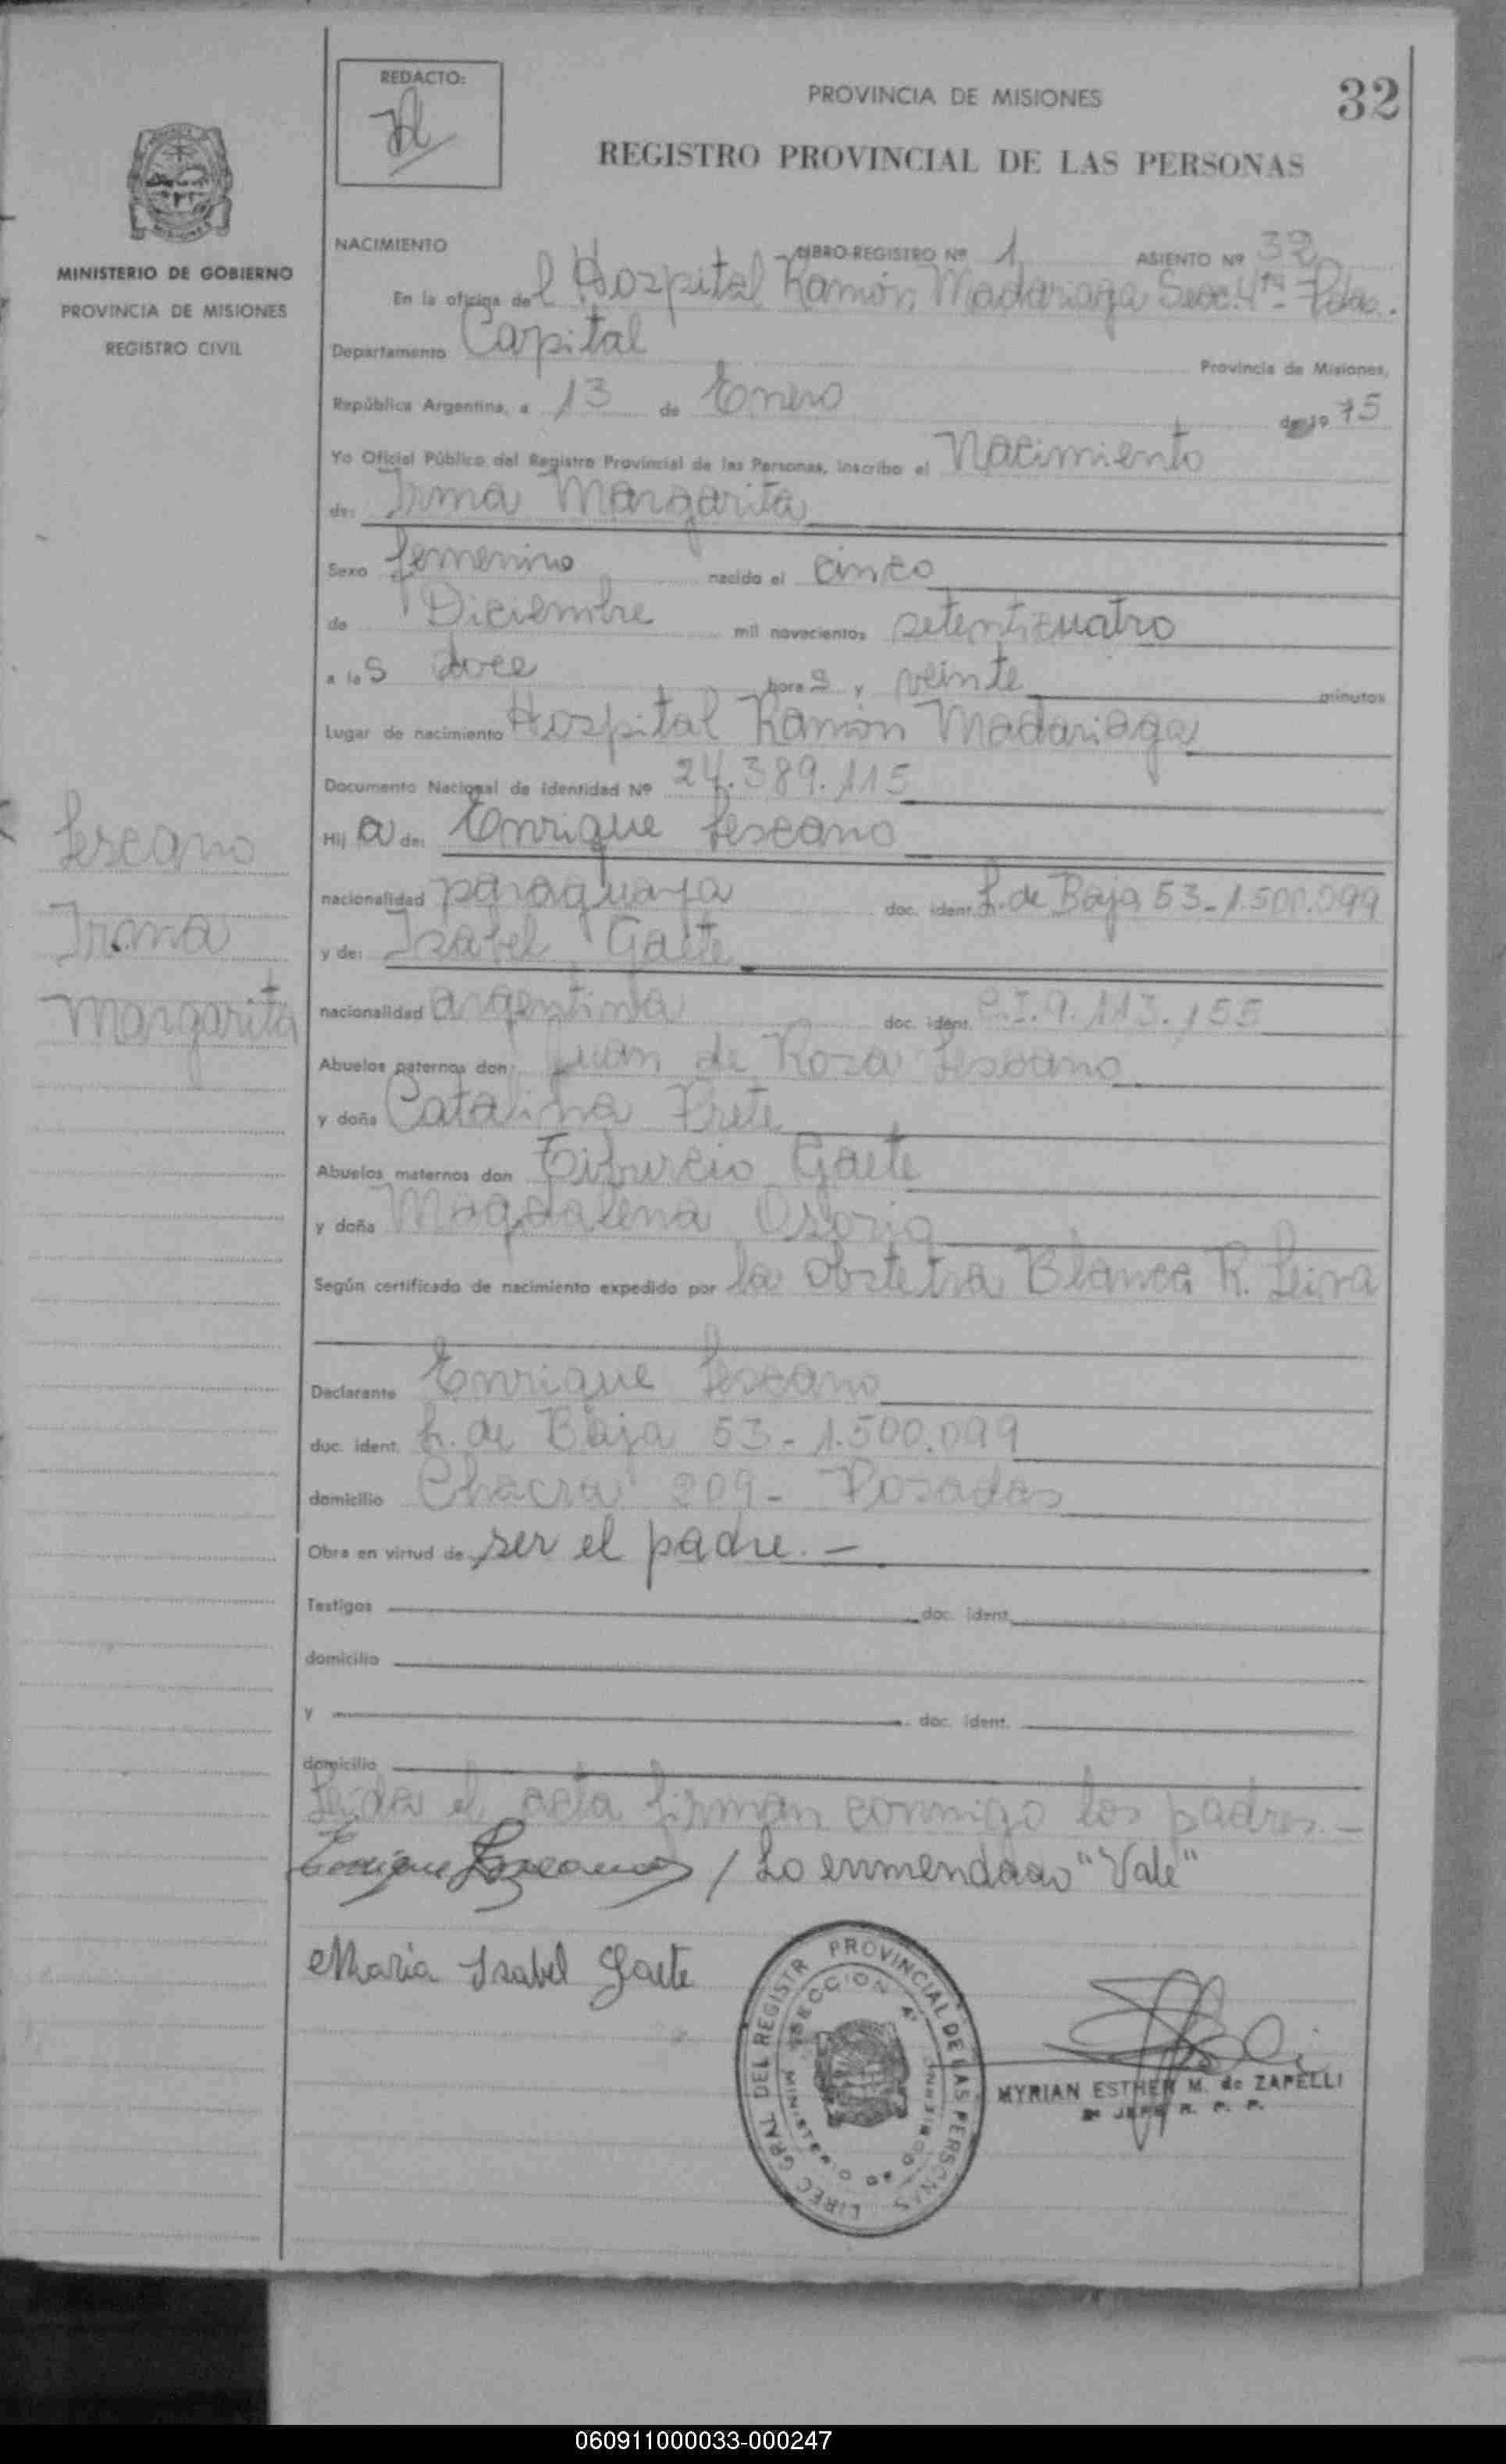 REDACTO:
PROVINCIA DE MISIONES
32
REGISTRO PROVINCIAL DE LAS PERSONAS
MINISTERIO DE GOBIERNO
PROVINCIA DE MISIONES
REGISTRO CIVIL
NACIMIENTO LIBRO-REGISTRO Nº 1 ASIENTO Nº 32
En la oficina del Hospital Ramón Madariaga Secc. 4ta Pdas.
Departamento Capital Provincia de Misiones,
República Argentina, a 13 de Enero de 1975
Yo Oficial Público del Registro Provincial de las Personas, inscribo el Nacimiento
de: Irma Margarita
Sexo femenino nacido el cinco
de Diciembre mil novecientos setenticuatro
a las doce horas y veinte minutos
Lugar de nacimiento Hospital Ramón Madariaga
Documento Nacional de Identidad Nº 24.389.115
Hija de: Enrique Lescano
nacionalidad paraguaya doc. ident. L. de Baja 53-1.500.099
y de: Isabel Gaete
nacionalidad argentina doc. ident. C.I. 9.113.155
Abuelos paternos don Juan de Rosa Lescano
y doña Catalina Frete
Abuelos maternos don Tiburcio Gaete
y doña Magdalena Osorio
Según certificado de nacimiento expedido por la obstetra Blanca R. Leiva
Declarante Enrique Lescano
doc. ident. L. de Baja 53-1.500.099
domicilio Chacra 209 - Posadas
Obra en virtud de ser el padre. -
Testigos doc. ident.
domicilio
y doc. ident.
domicilio
Leída el acta firman conmigo los padres.-
Enrique Lescano / Lo enmendado "Vale"
Maria Isabel Gaete
Lescano
Irma
Margarita
DIREC GRAL DEL REGISTR PROVINCIAL DE LAS PERSONAS
SECCION 4ª
MINISTERIO DE GOBIERNO
MYRIAN ESTHER M. de ZAPELLI
JEFE R. P. P.
060911000033-000247